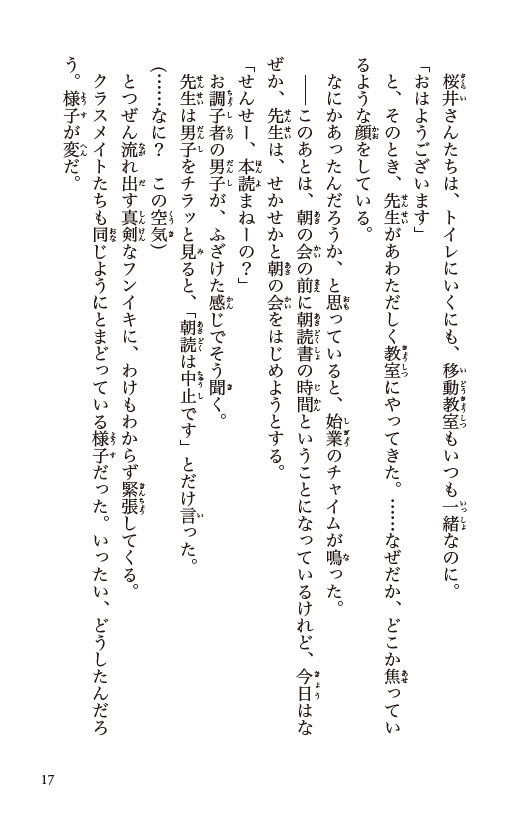 桜井さんたちは、トイレにいくにも、移動教室もいつも一緒なのに。
「おはようございます」
と、そのとき、先生があわただしく教室にやってきた。……なぜだか、どこか焦ってい
るような顔をしている。
なにかあったんだろうか、と思っていると、始業のチャイムが鳴った。
――このあとは、朝の会の前に朝読書の時間ということになっているけれど、今日はな
ぜか、先生は、せかせかと朝の会をはじめようとする。
「せんせー、本読まねーの？」
お調子者の男子が、ふざけた感じでそう聞く。
先生は男子をチラッと見ると、「朝読は中止です」とだけ言った。
（……なに？　この空気）
とつぜん流れ出す真剣なフンイキに、わけもわからず緊張してくる。
クラスメイトたちも同じようにとまどっている様子だった。いったい、どうしたんだろ
う。様子が変だ。
17